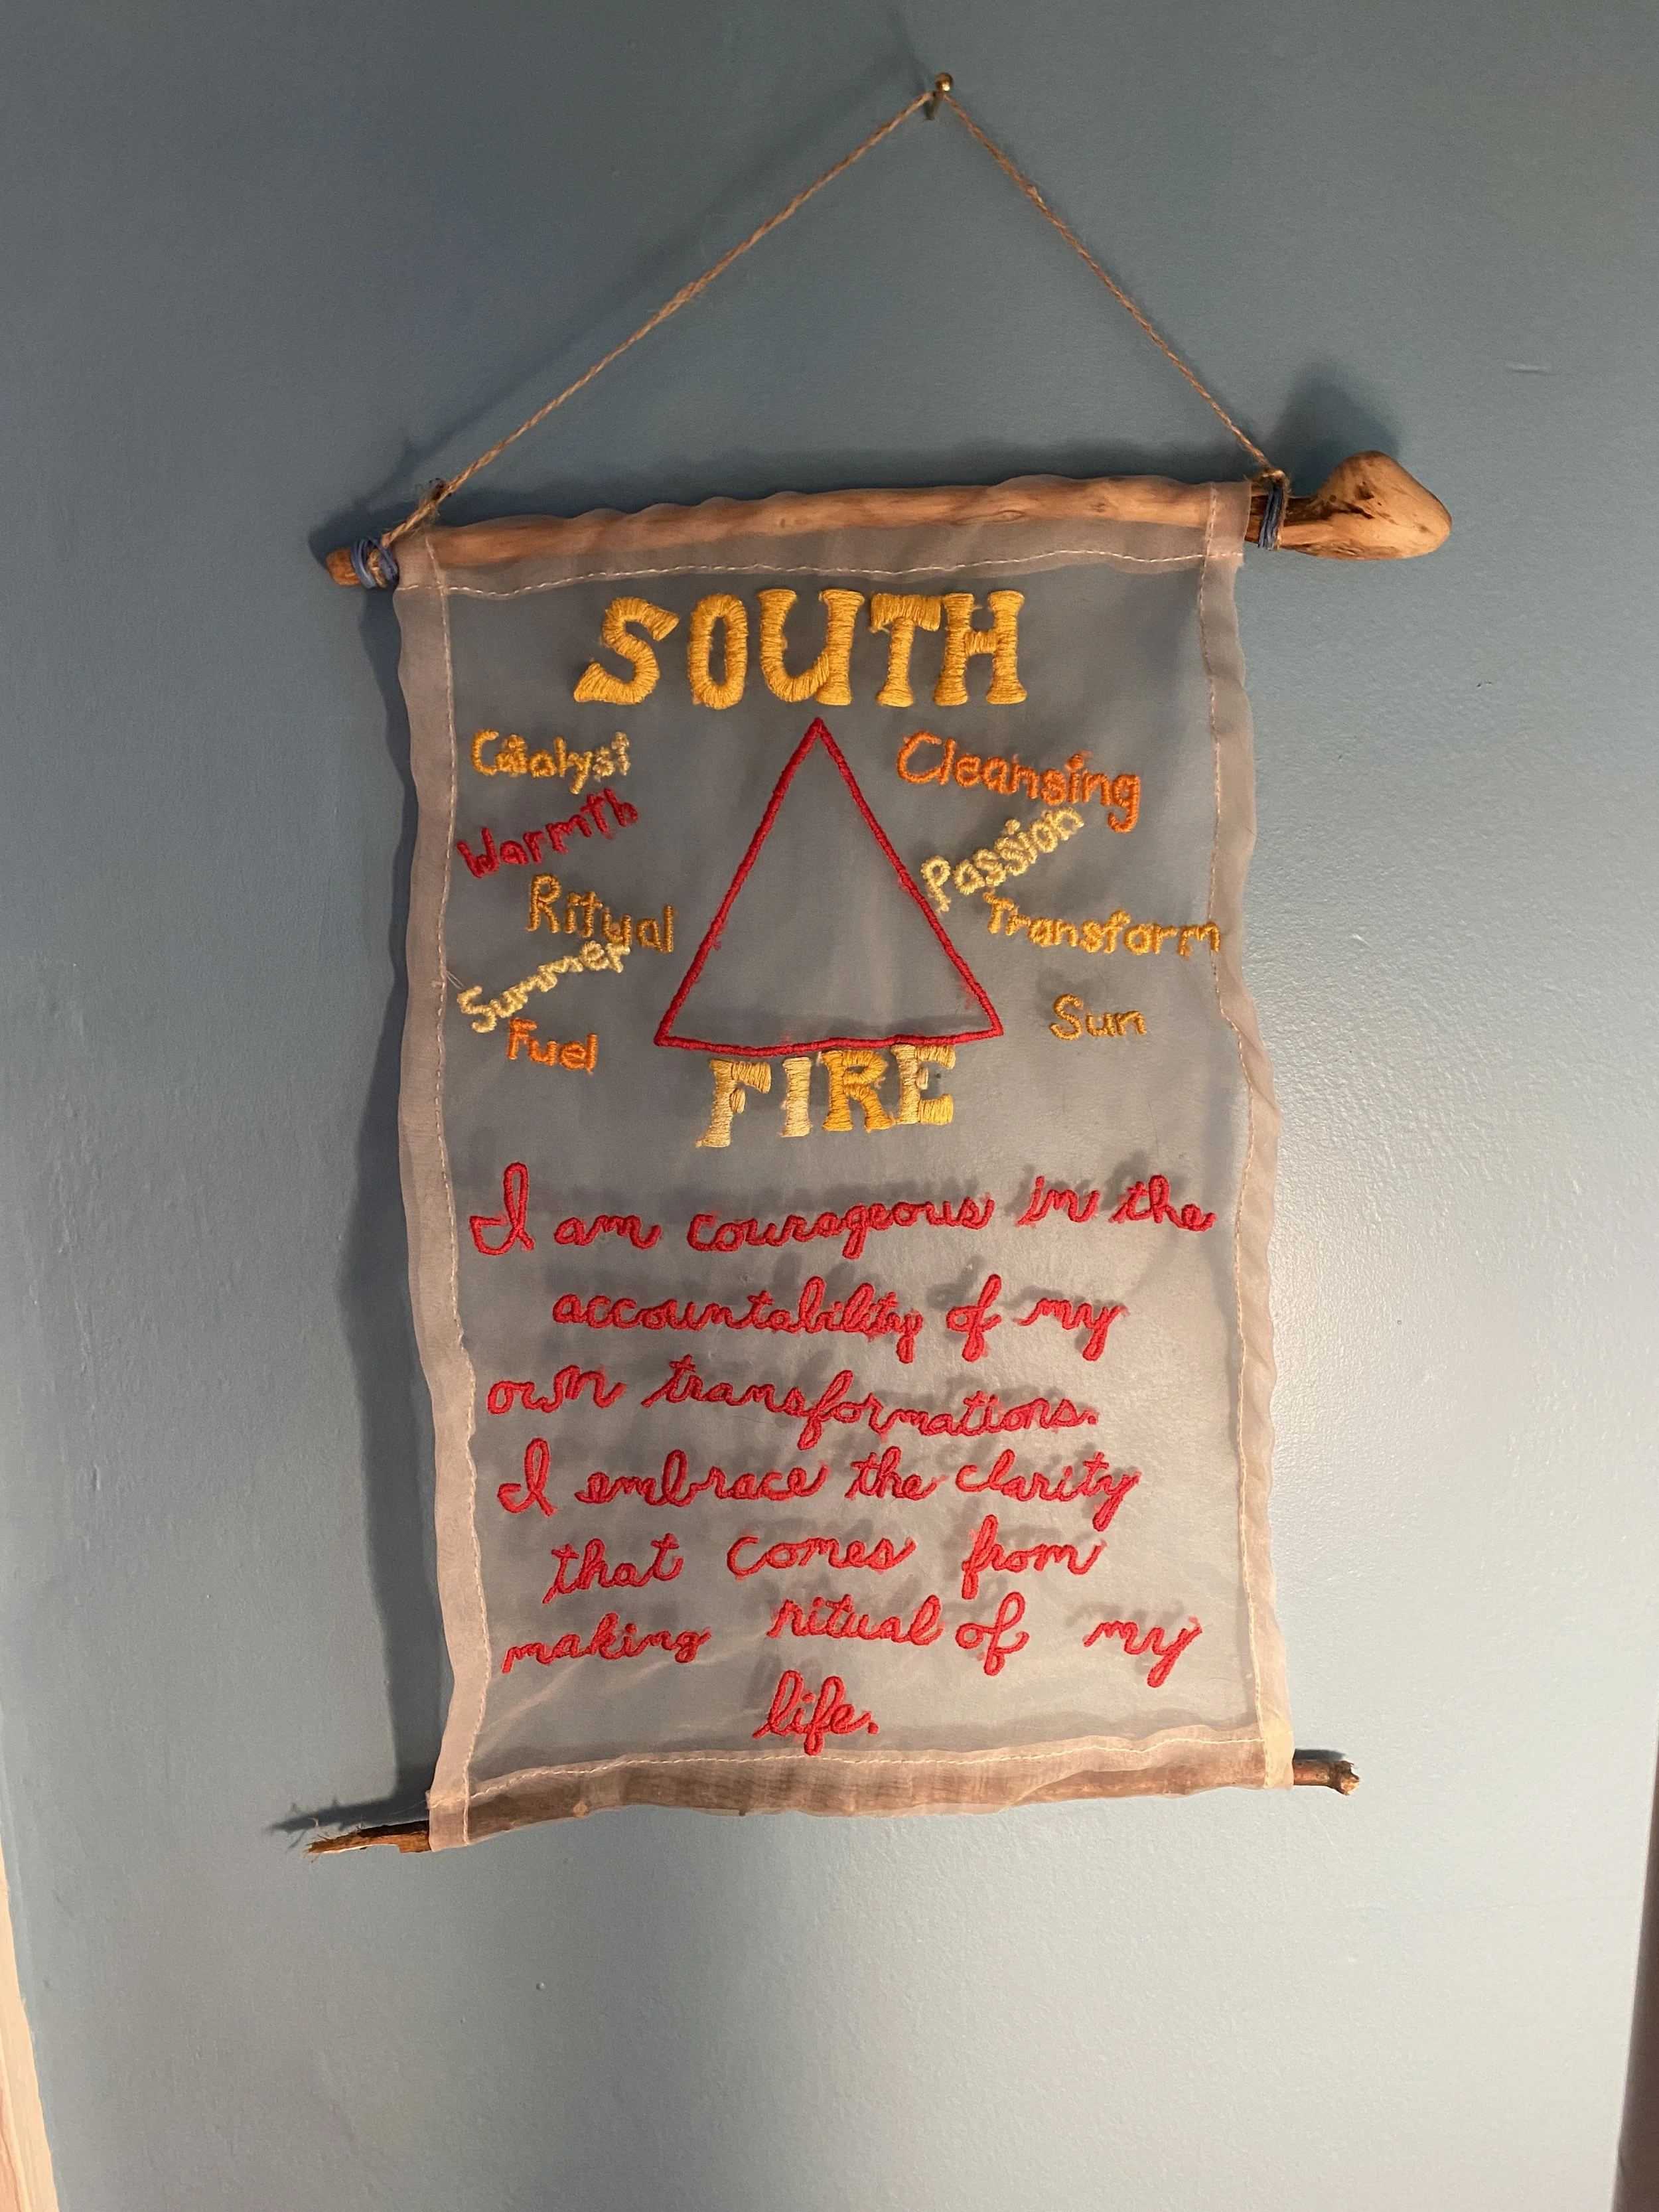 SOUTH
Catalyst
Warmth
Ritual
Summer
Fuel
Cleansing
Passion
Transform
Sun
FIRE
I am courageous in the
accountability of my
own transformations.
I embrace the clarity
that comes from
making ritual of my
life.